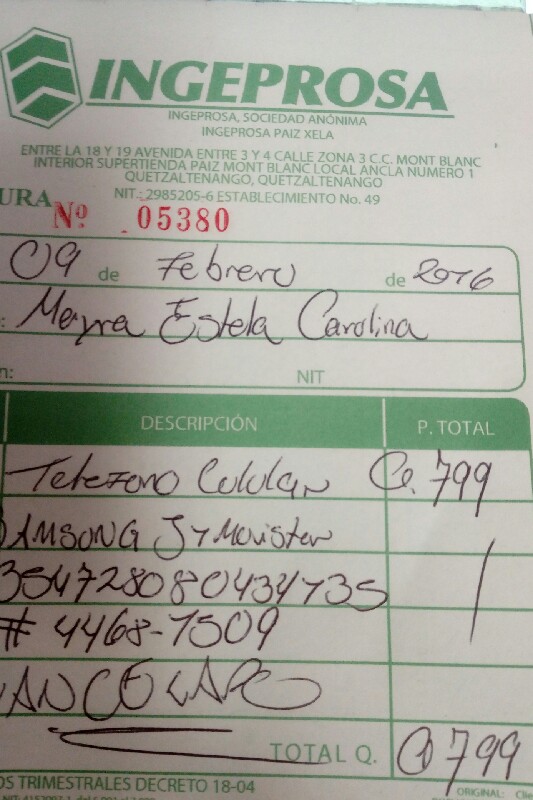 INGEPROSA
INGEPROSA, SOCIEDAD ANÓNIMA
INGEPROSA PAIZ XELA
ENTRE LA 18 Y 19 AVENIDA ENTRE 3 Y 4 CALLE ZONA 3 C.C. MONT BLANC
INTERIOR SUPERTIENDA PAIZ MONT BLANC LOCAL ANCLA NUMERO 1
QUETZALTENANGO, QUETZALTENANGO
NIT.: 2985205-6 ESTABLECIMIENTO No. 49
URA Nº 05380
09 de Febrero de 2016
Mayra Estela Carolina
n: NIT
DESCRIPCIÓN P. TOTAL
Telefono Celular Q. 799
SAMSONG J Movistar
354728080434735
# 4468-7509
ANCELADO
TOTAL Q. Q 799
OS TRIMESTRALES DECRETO 18-04
ORIGINAL: Clie